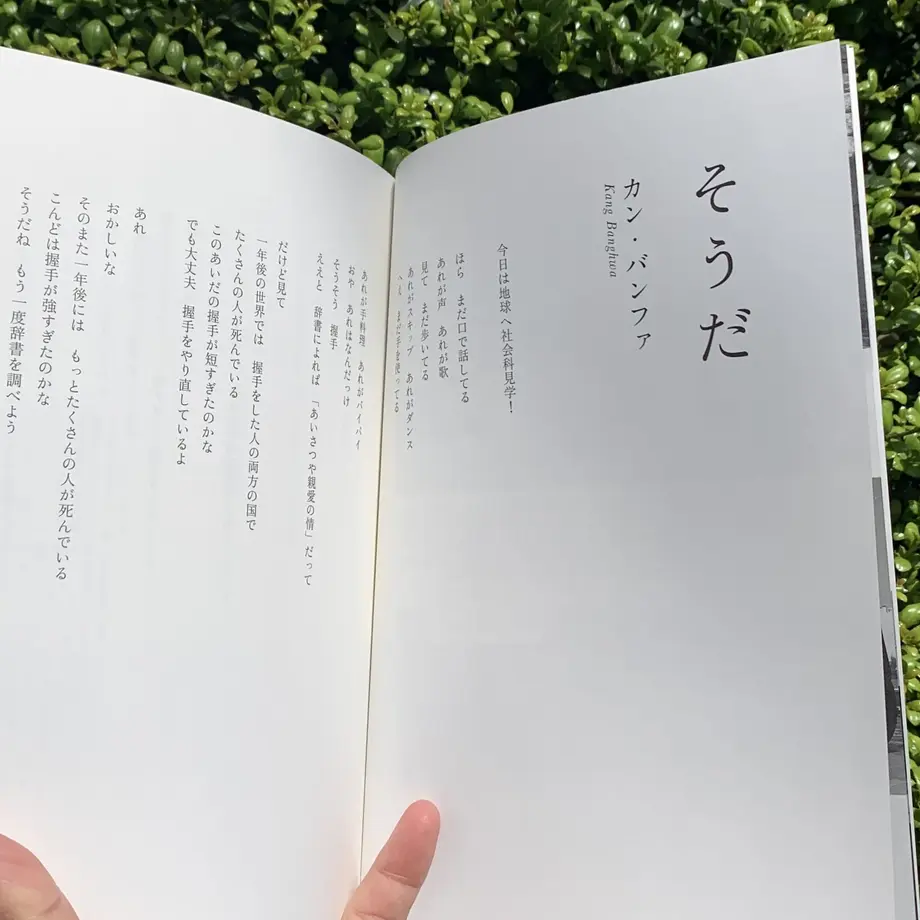 そうだ
カン・バンファ
Kang Banghwa
今日は地球へ社会科見学！
ほら　まだ口で話してる
あれが声　あれが歌
見て　まだ歩いてる
あれがスキップ　あれがダンス
へえ　まだ手を使ってる
あれが手料理　あれがバイバイ
おや　あれはなんだっけ
そうそう　握手
ええと　辞書によれば　「あいさつや親愛の情」だって
だけど見て
一年後の世界では　握手をした人の両方の国で
たくさんの人が死んでいる
このあいだの握手が短すぎたのかな
でも大丈夫　握手をやり直しているよ
あれ
おかしいな
そのまた一年後には　もっとたくさんの人が死んでいる
こんどは握手が強すぎたのかな
そうだね　もう一度辞書を調べよう